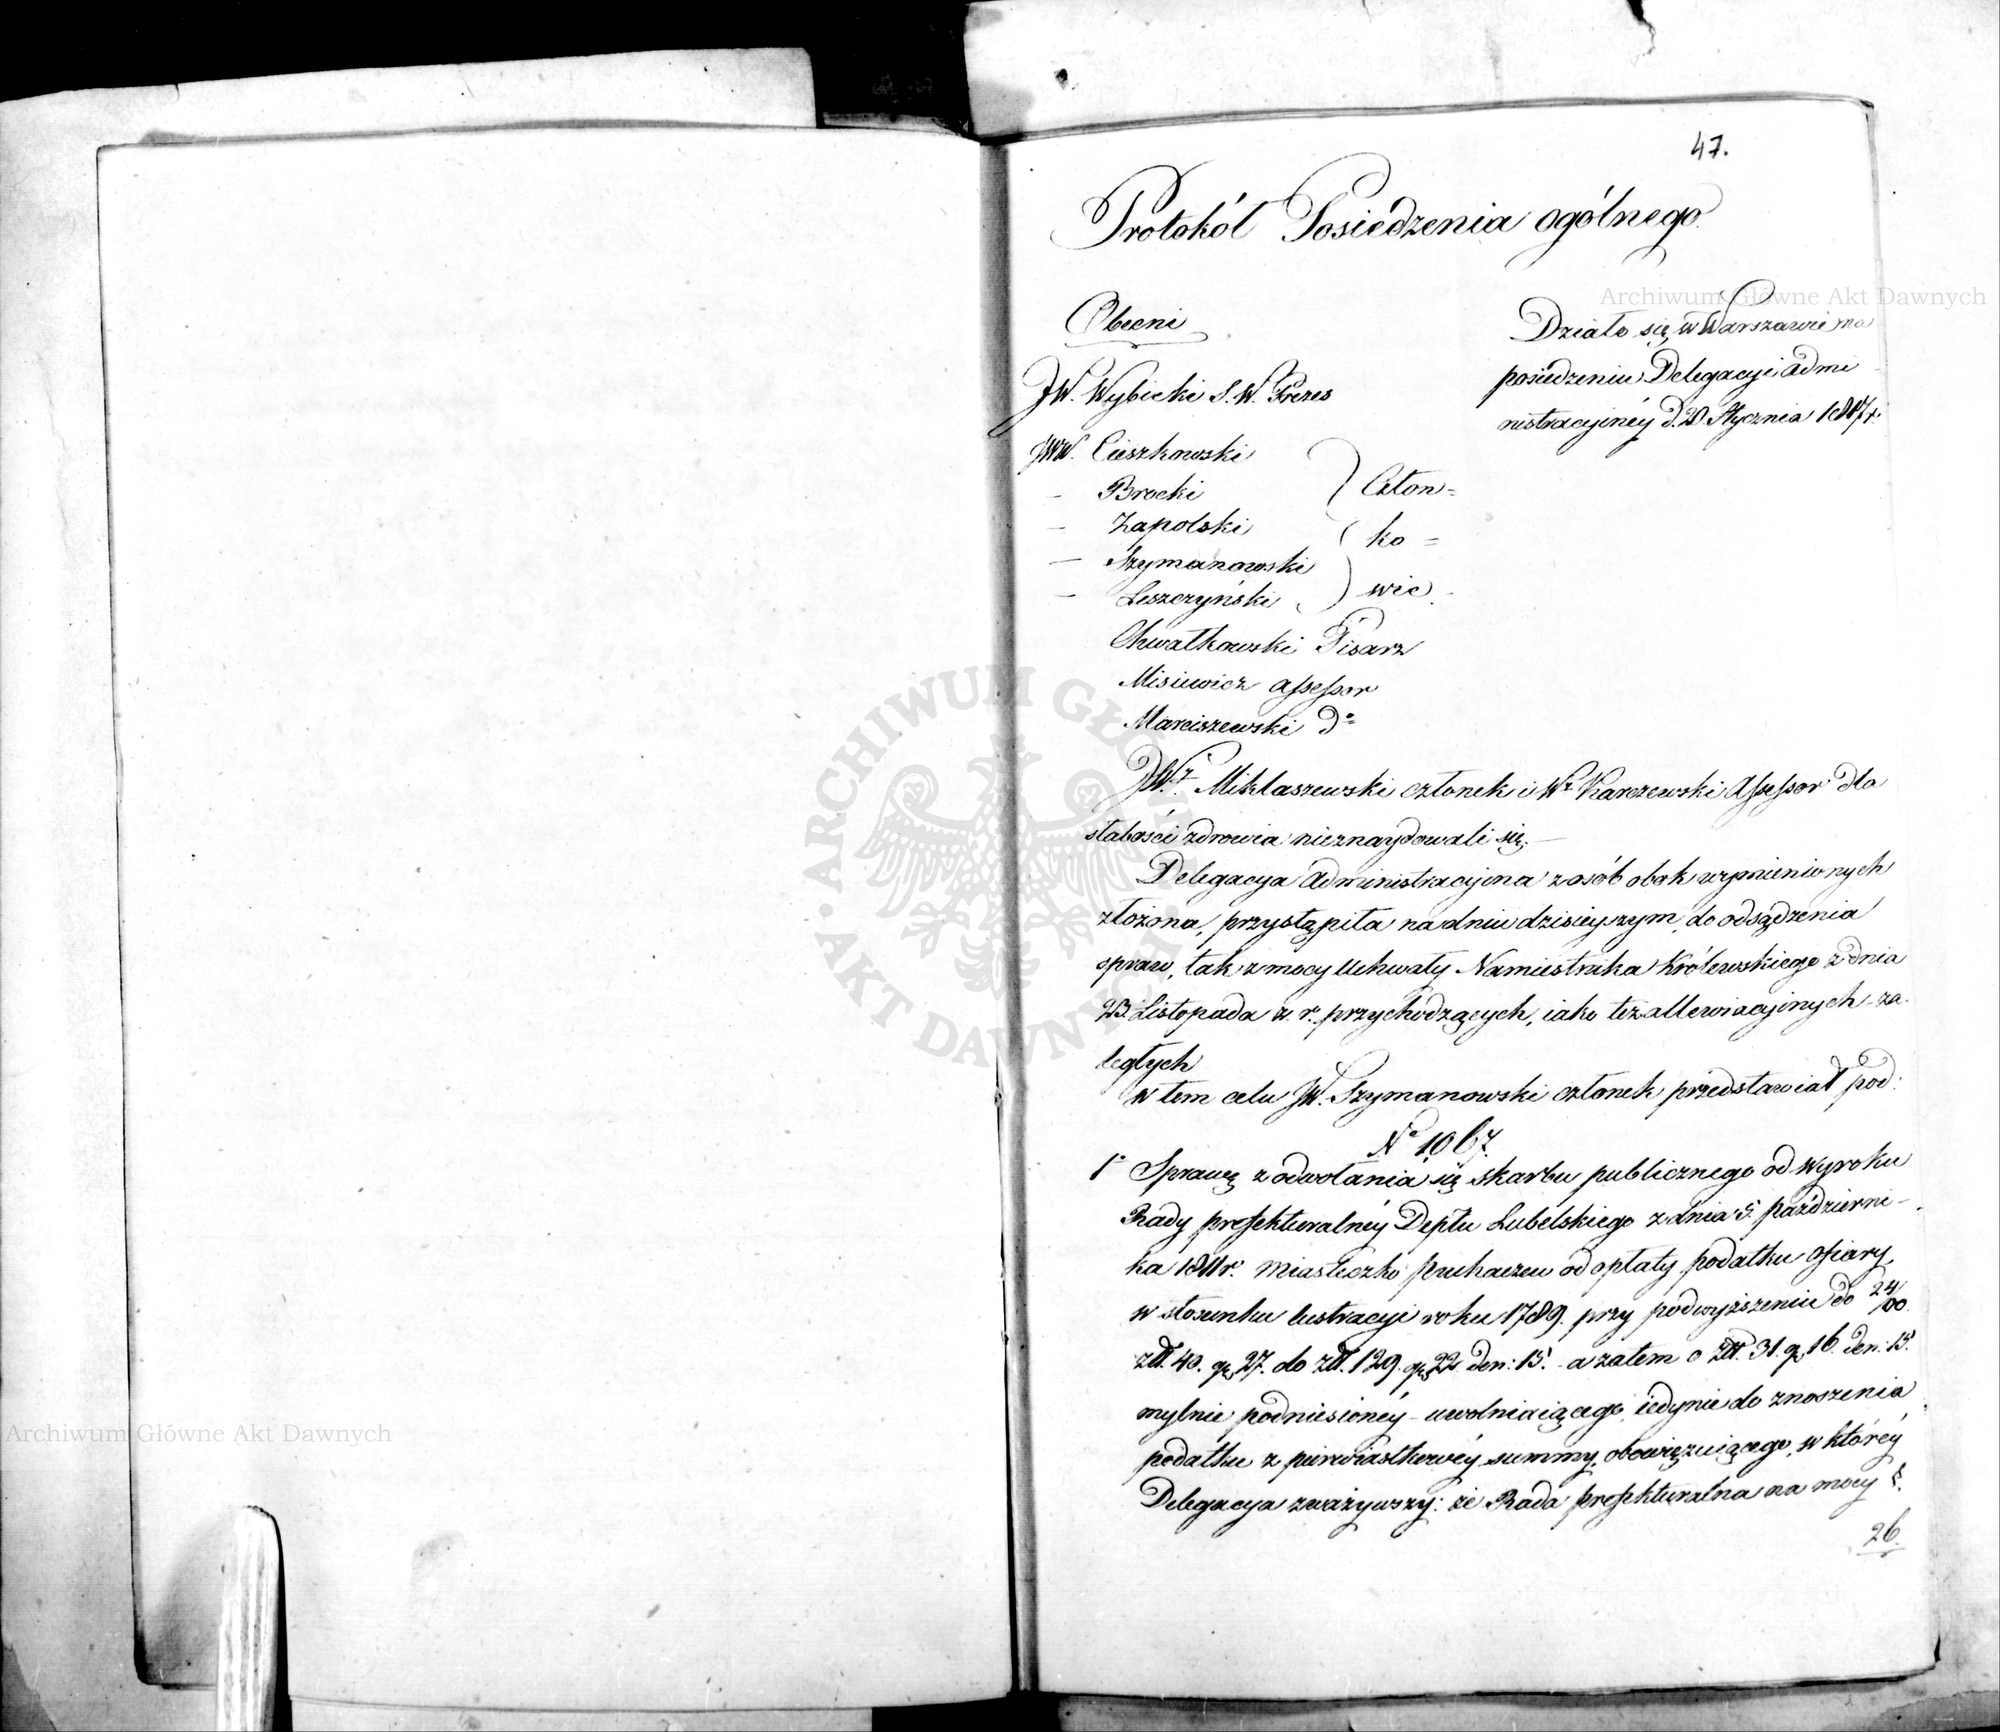 47.
Protokół Posiedzenia ogólnego.
Obecni
Działo się w Warszawie na
posiedzeniu Delegacyi Admi
nistracyinéy d. 20 Stycznia 1817 r.
JW. Wybicki S. W. Prezes
JWW. Cieszkowski
— Brocki
— Zapolski
— Szymanowski
— Leszczyński
Człon=
ko=
wie
Chwalkowski Pisarz
Misiewicz assessor
Marciszewski do
JW. Miklaszewski członek i Wr Karczewski Assessor dla
słabości zdrowia nieznaydowali się.—
Delegacya Administracyina z osób obok wzmienionych
złożona, przystąpiła na dniu dzisieyszym, do odsądzenia
spraw, tak z mocy Uchwały Namiestnika Królewskiego z dnia
23. Listopada z. r. przychodzących, iako też allewiacyinych za-
ległych
w tem celu JW. Szymanowski członek przedstawiał pod:
No 1067.
1o Sprawę z odwołania się skarbu publicznego od wyroku
Rady prefekturalnéy Deptu Lubelskiego z dnia 5. październi-
ka 1811 r. miasteczko Puchaczew od opłaty podatku ofiary,
w stosunku lustracyi roku 1789. przy podwyższeniu do 24/100.
zł. 40. gr. 27. do zł. 129. gr. 22 den: 15. - a zatem o zł. 31. gr. 16. den: 15.
mylnie podniesionéy - uwolniaiącego, iedynie do znoszenia
podatku z pierwiastkowéy summy, obowięzuiącego, w któréy
Delegacya zważywszy: że Rada prefekturalna na mocy §.
26.
Archiwum Główne Akt Dawnych
Archiwum Główne Akt Dawnych
ARCHIWUM GŁÓWNE AKT DAWNYCH